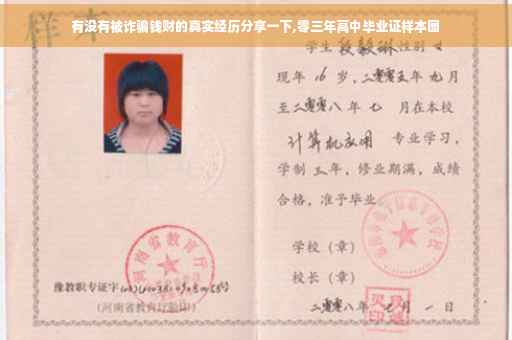 有没有被诈骗钱财的真实经历分享一下,零三年高中毕业证样本图
样本
学生段毅琳性别女
现年16岁,二零零五年九月
至二零零八年七月在本校
计算机应用专业学习,
学制三年,修业期满,成绩
合格,准予毕业。
学校(章)
校长(章)
二零零八年七月一日
河南省教育厅
豫教职专证字
(河南省教育厅验印)